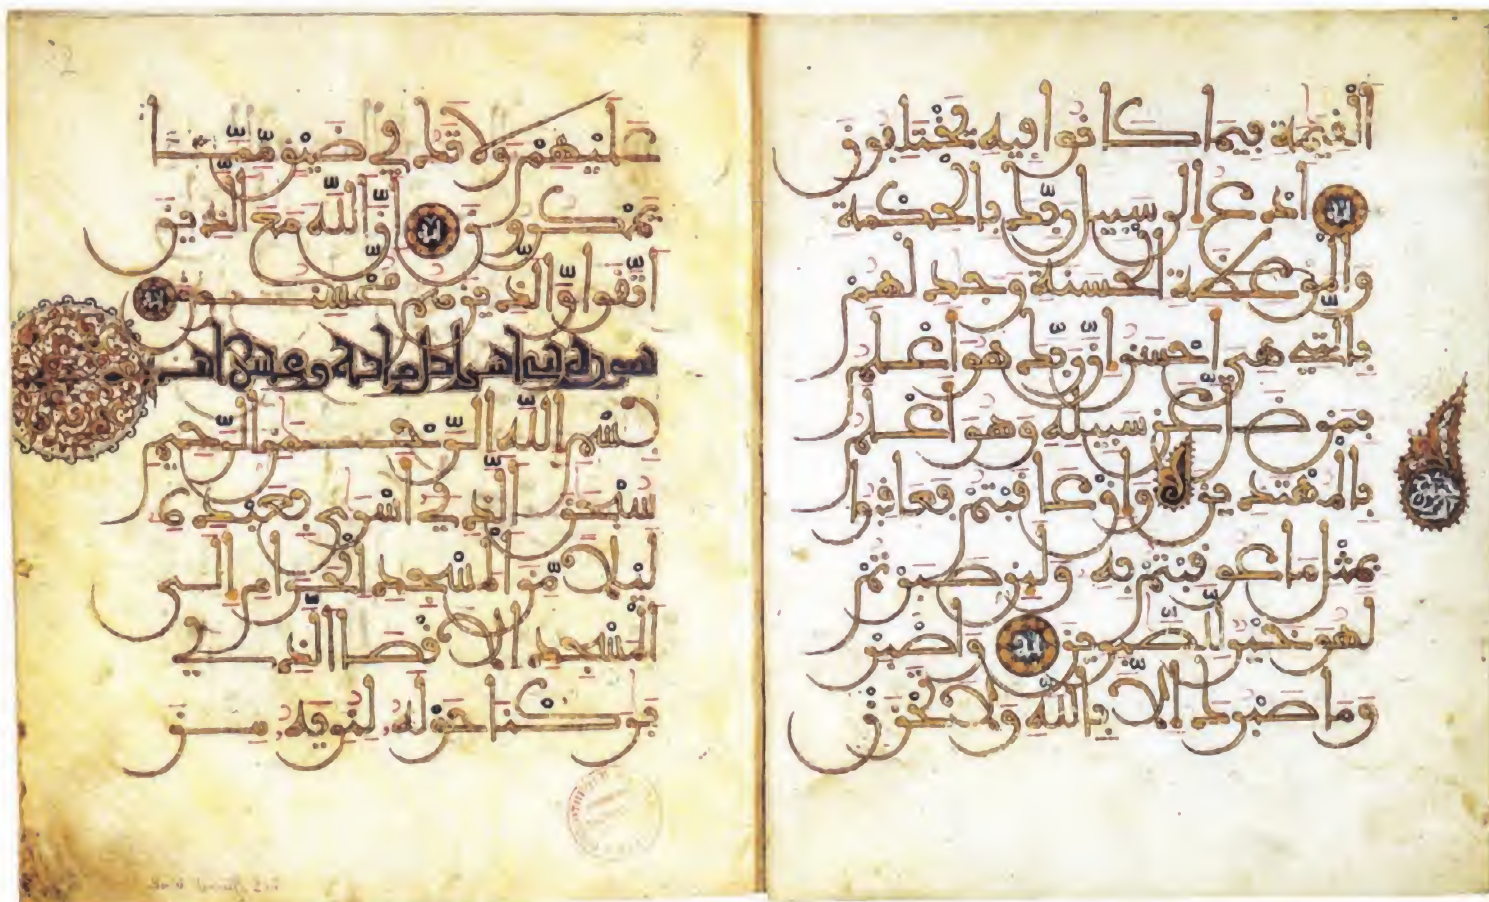 القيمة فيما كانوا فيه يختلفون
ادع الى سبيل ربك بالحكمة
والموعظة الحسنة وجدلهم
بالتي هي احسن ان ربك هو اعلم
بمن ضل عن سبيله وهو اعلم
بالمهتدين وان عاقبتم فعاقبوا
بمثل ما عوقبتم به ولين صبرتم
لهو خير للصبرين واصبر
وما صبرك الا بالله ولا تحزن
عليهم ولا تك في ضيق مما
يمكرون ان الله مع الذين
اتقوا والذين هم محسنون
سورة بني اسرايل ماية وعشر ايات
بسم الله الرحمن الرحيم
سبحن الذي اسرى بعبده
ليلا من المسجد الحرام الى
المسجد الاقصا الذي
بركنا حوله لنريه من